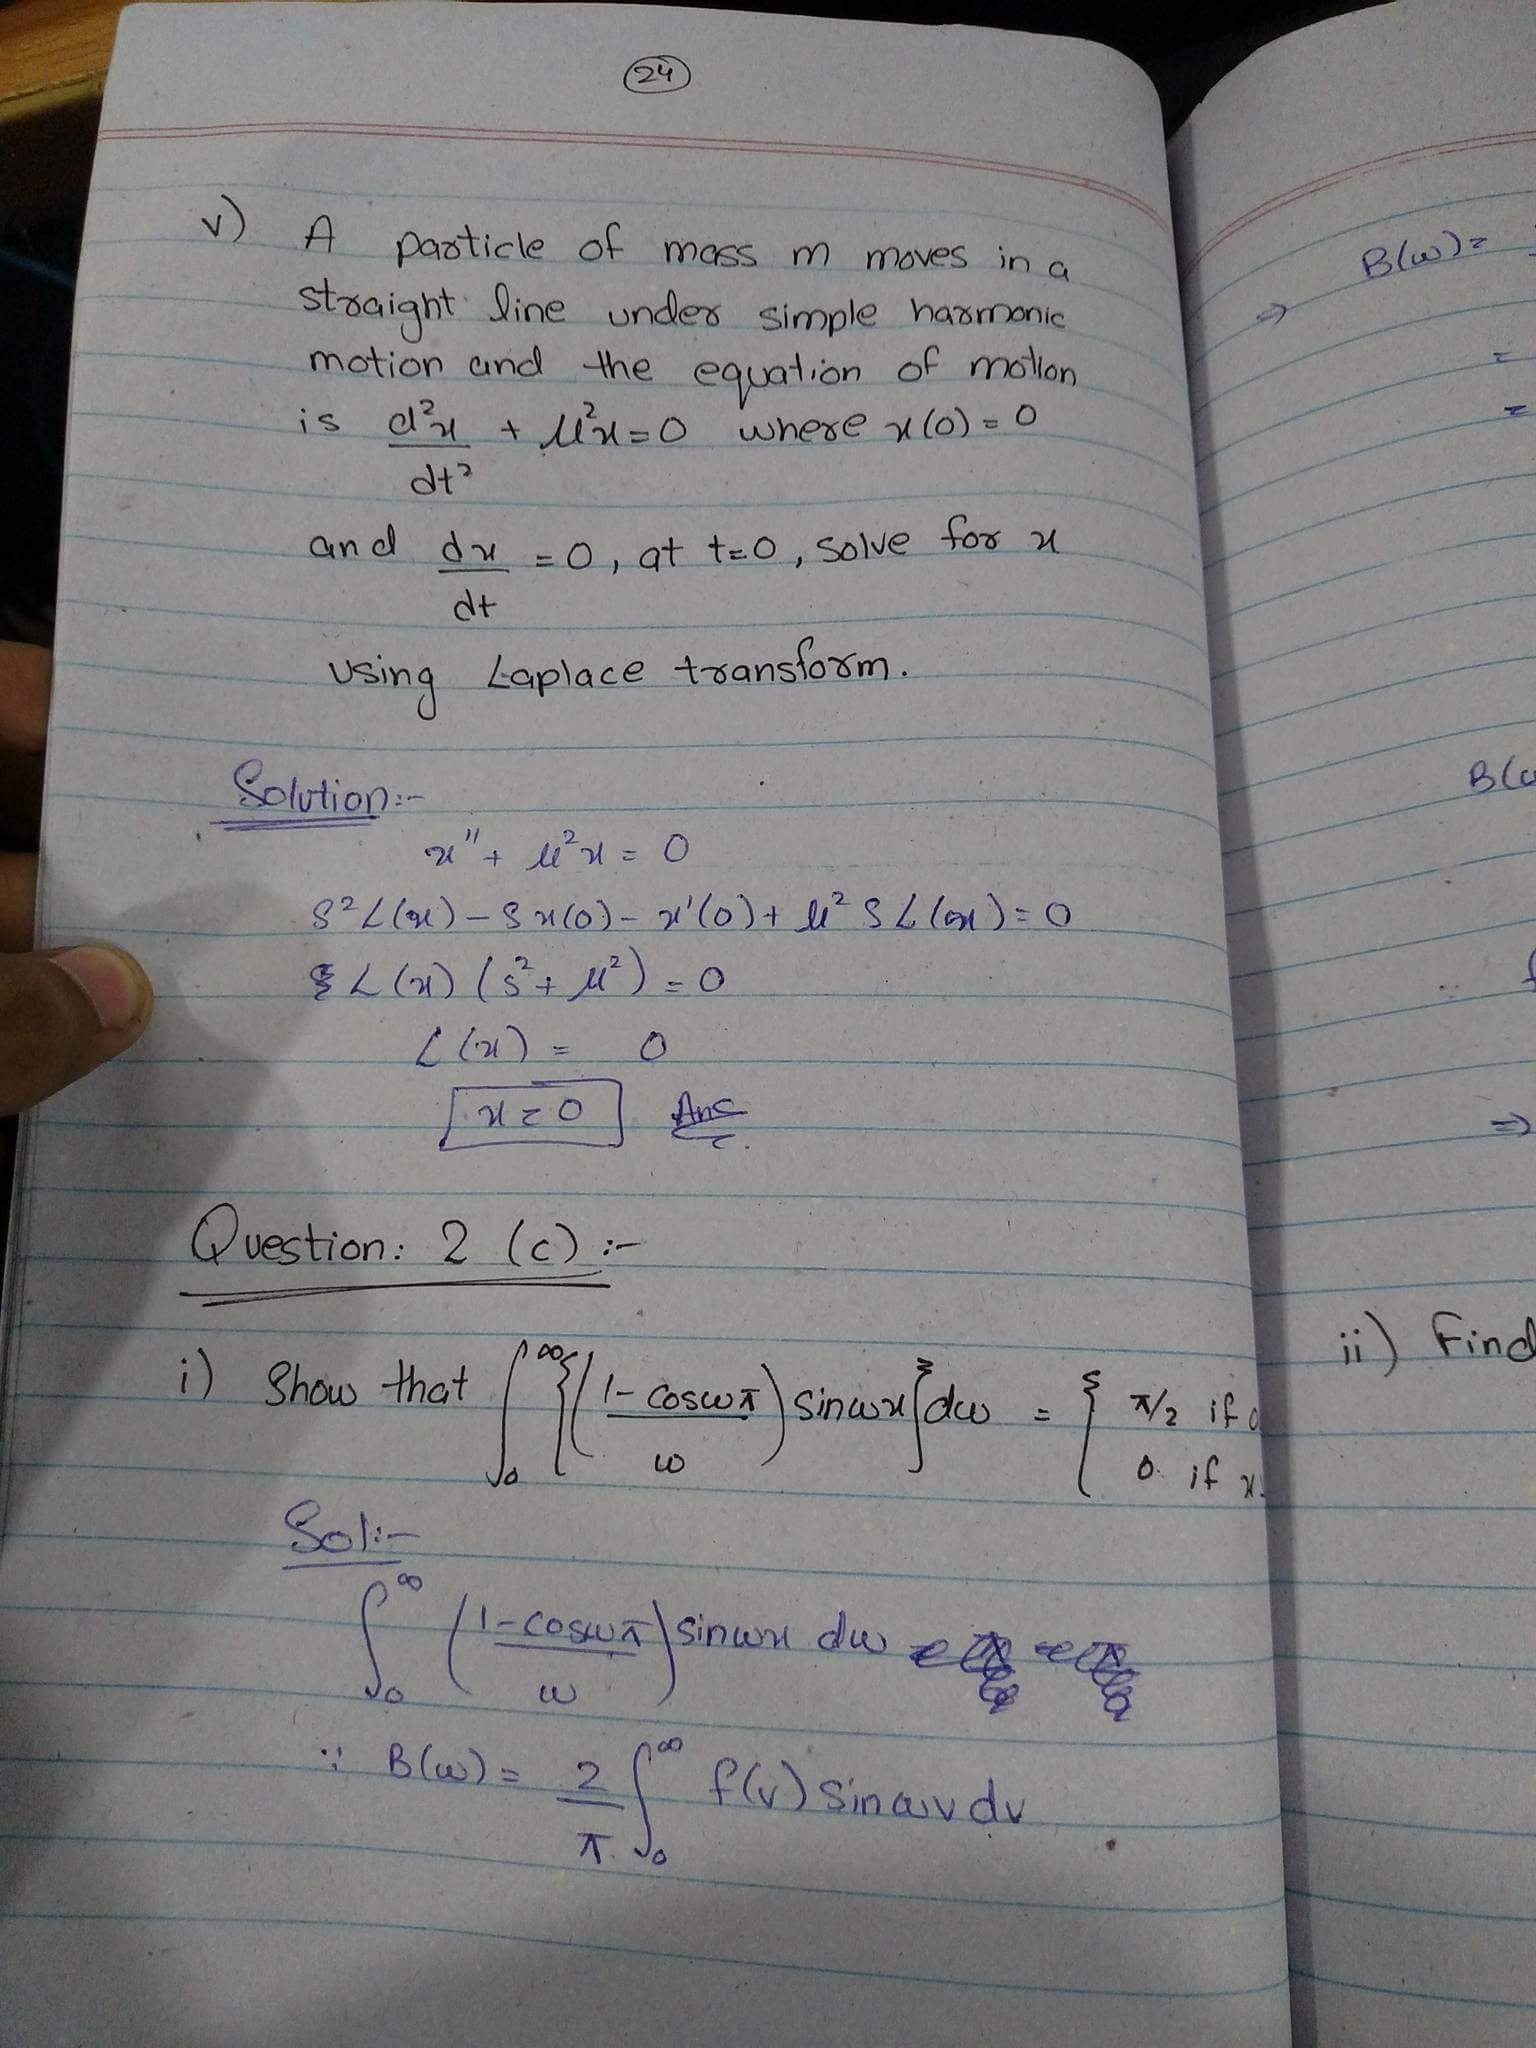 24
v) A particle of mass m moves in a
straight line under simple harmonic
motion and the equation of motion
is d²x/dt² + μ²x = 0 where x(0) = 0
and dx/dt = 0, at t=0, solve for x
using Laplace transform.
Solution:-
x'' + μ²x = 0
S²L(x) - Sx(0) - x'(0) + μ² S L(x) = 0
L(x) (s² + μ²) = 0
L(x) = 0
x = 0 Ans
Question: 2 (c) :-
i) Show that ∫₀^∞ {(1 - cosωπ / ω) sinωx} dω = { π/2 if 0
0 if x
Sol:-
∫₀^∞ (1 - cosωπ / ω) sinωx dω
∵ B(ω) = 2/π ∫₀^∞ f(v) sinωv dv
B(ω) =
⇒
=
=
B(ω
f
⇒
ii) Find